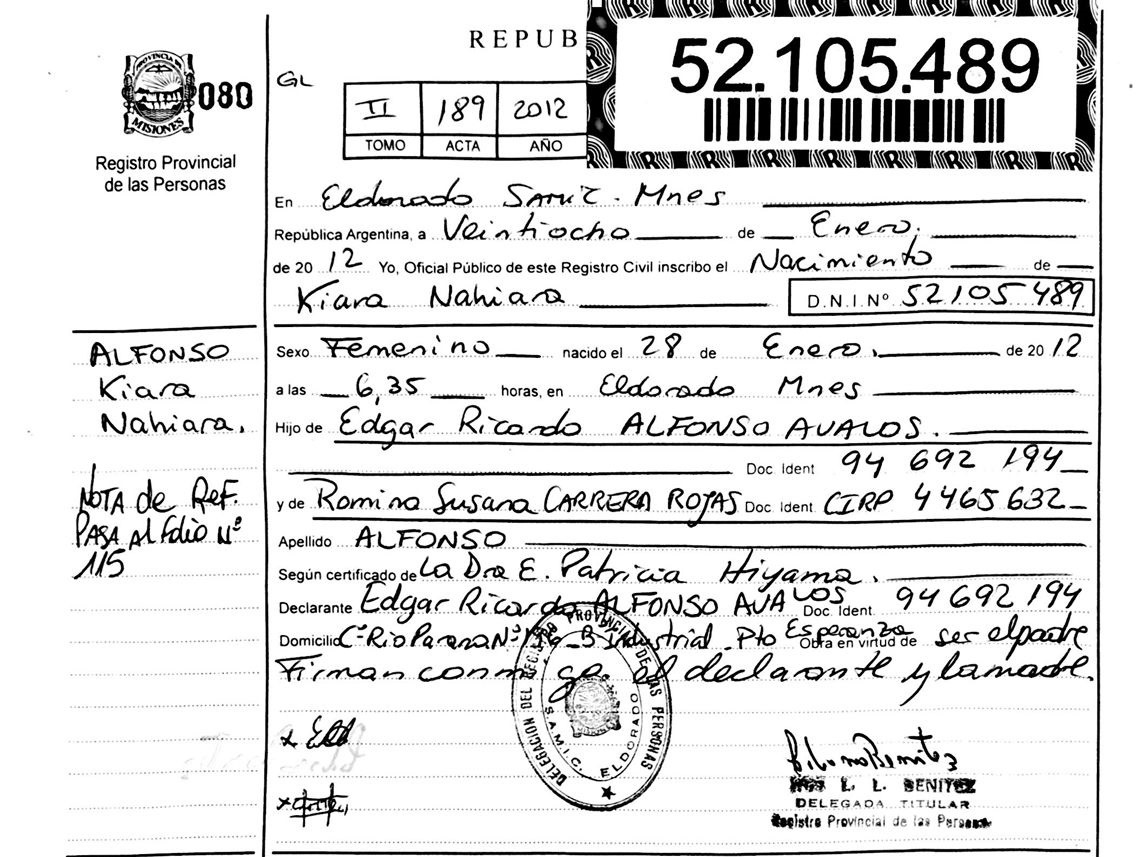 REPUB
52.105.489
PROVINCIA DE
MISIONES
080
GL
II 189 2012
TOMO ACTA AÑO
Registro Provincial
de las Personas
En Eldorado SAMIC. Mnes
República Argentina, a Veintiocho de Enero.
de 2012 Yo, Oficial Público de este Registro Civil inscribo el Nacimiento de
Kiara Nahiara D.N.I.Nº 52105489
ALFONSO
Kiara
Nahiara.
Sexo Femenino nacido el 28 de Enero. de 2012
a las 6,35 horas, en Eldorado Mnes
Hijo de Edgar Ricardo ALFONSO AVALOS.
Doc. Ident 94 692 194
NOTA de REF.
PASA Al folio Nº
115
y de Romina Susana CARRERA ROJAS Doc. Ident. CIRP 4465632
Apellido ALFONSO
Según certificado de La Dra E. Patricia Hiyama.
Declarante Edgar Ricardo ALFONSO AVALOS Doc. Ident. 94692194
Domicilio Cº Rio Parana Nº B Industrial Pto Esperanza Obra en virtud de ser el padre
Firman conmigo el declarante y la madre.
DELEGACION DEL REGISTRO PROVINCIAL DE LAS PERSONAS
S.A.M.I.C. ELDORADO
L. L. BENITEZ
DELEGADA TITULAR
Registro Provincial de las Personas